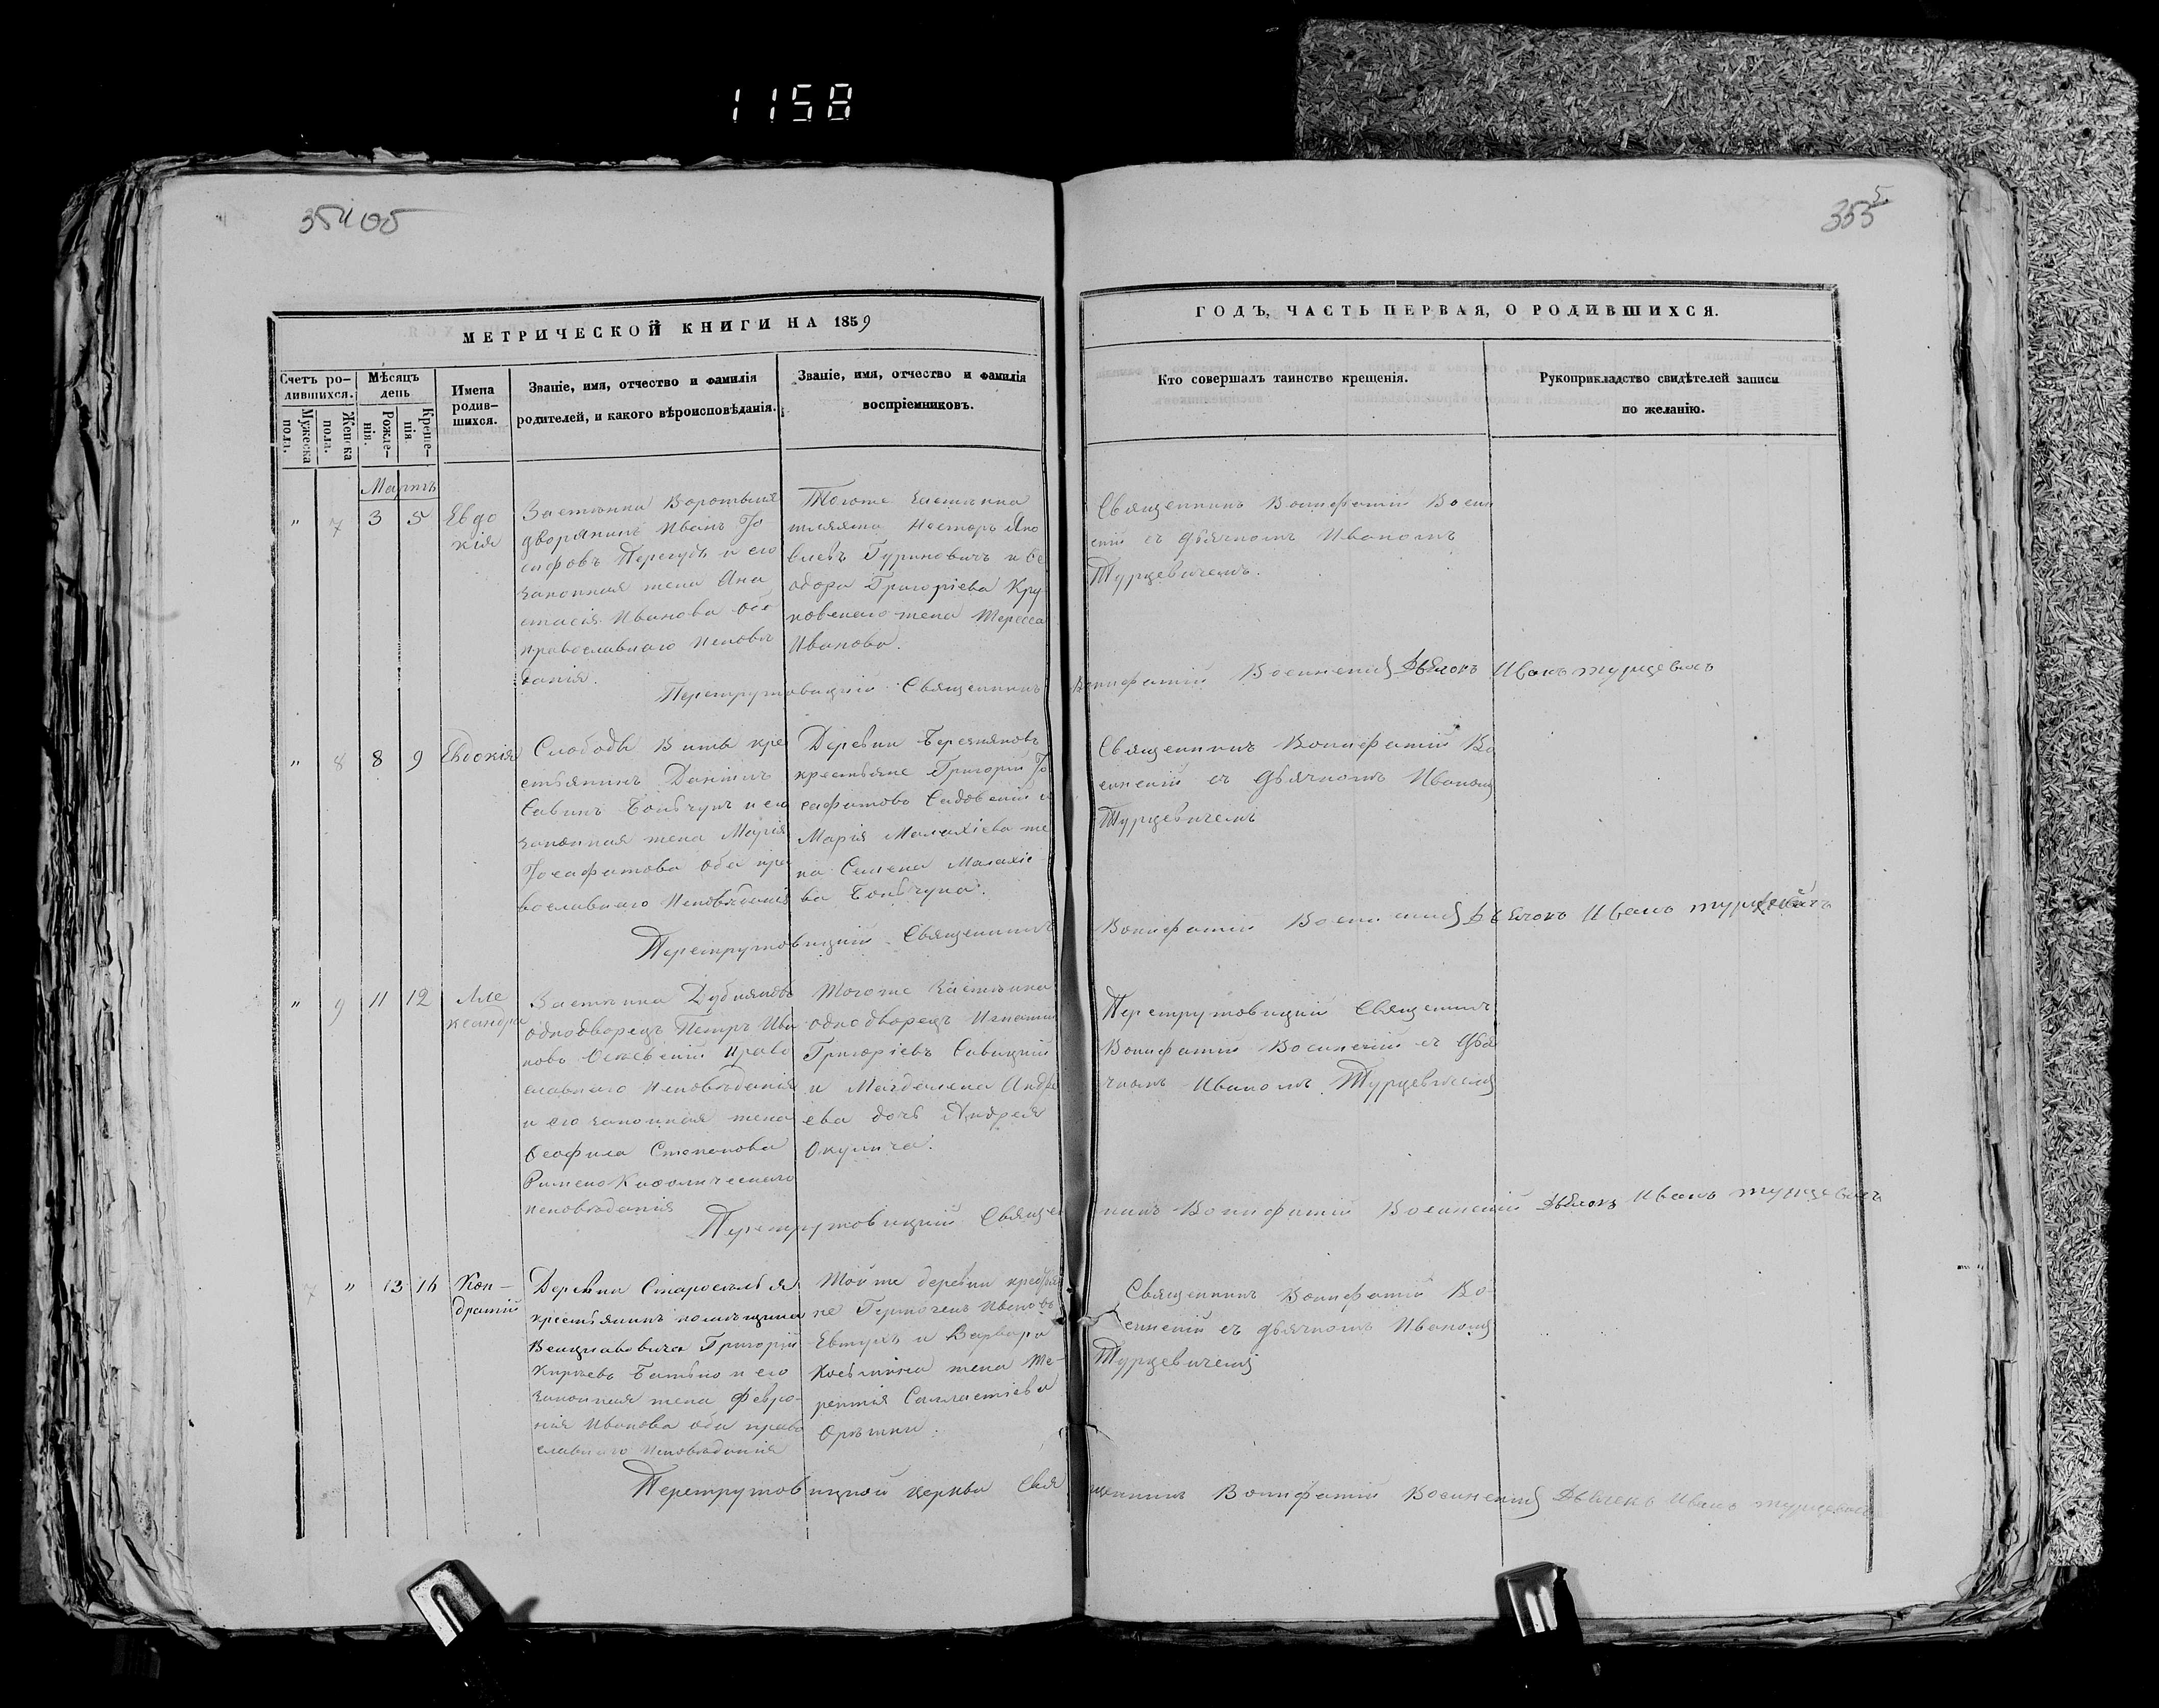 1158
354 об
355
МЕТРИЧЕСКОЙ КНИГИ НА 1859
ГОДЪ, ЧАСТЬ ПЕРВАЯ, О РОДИВШИХСЯ.
Счетъ ро-
дившихся.
Мужеска
пола.
Женска
пола.
Мѣсяцъ
день
Рожде-
нія.
Креще-
нія.
Имена
родив-
шихся.
Званіе, имя, отчество и фамилія
родителей, и какого вѣроисповѣданія.
Званіе, имя, отчество и фамилія
воспріемниковъ.
Кто совершалъ таинство крещенія.
Рукоприкладство свидѣтелей записи
по желанію.
Мартъ
" 7 3 5
Евдо
кія
Застѣнка
дворянинъ Иванъ Іо
сифовъ и его
законная жена Ана
стасія Иванова обо
православнаго исповѣ
данія.
Тогоже застѣнка
шляхта Несторъ Яко
влевъ Гуриновичъ и Ѳе
одора Григоріева Кру
ковскаго жена Тереса
Иванова.
Священникъ Вонифатій Восин
скій съ дьячкомъ Иваномъ
Турцевичемъ.
Перетрутовицкій Священникъ Вонифатій Восинскій Дьячокъ Иванъ Турцевичъ
" 8 8 9
Евдокія
Слободы кре
стьянинъ
Савинъ и его
законная жена Марія
Іосафатова оба пра
вославнаго исповѣданія
Деревни
крестьяне Григорій Іо
сафатовъ Садовскій и
Марія Малахіева же
на Семена Малахіе
ва
Священникъ Вонифатій Во
синскій съ дьячкомъ Иваномъ
Турцевичемъ
Перетрутовицкій Священникъ Вонифатій Восинскій Дьячокъ Иванъ Турцевичъ
" 9 11 12
Але
ксандра
Застѣнка
однодворецъ Петръ Ива
новъ право
славнаго исповѣданія
и его законная жена
Ѳеофила Степанова
Римско Каѳолическаго
исповѣданія
Тогоже застѣнка
однодворецъ Игнатій
Григоріевъ Савицкій
и Магдалена Андре
ева дочь Андрея
Окулича.
Перетрутовицкій Священникъ
Вонифатій Восинскій съ дья
чкомъ Иваномъ Турцевичемъ
Перетрутовицкій Священникъ Вонифатій Восинскій Дьячокъ Иванъ Турцевичъ
7 " 13 16
Кон-
дратій
Деревни Староселья
крестьянинъ помѣщика
Григорій
и его
законная жена Февро-
нія Иванова оба право
славнаго исповѣданія
Той же деревни крестья
не Гермогенъ Ивановъ
Евтухъ и Варвара
Косьмина жена Те-
рентія
Орѣшки.
Священникъ Вонифатій Во
синскій съ дьячкомъ Иваномъ
Турцевичемъ
Перетрутовицкой церкви Священникъ Вонифатій Восинскій Дьячекъ Иванъ Турцевичъ